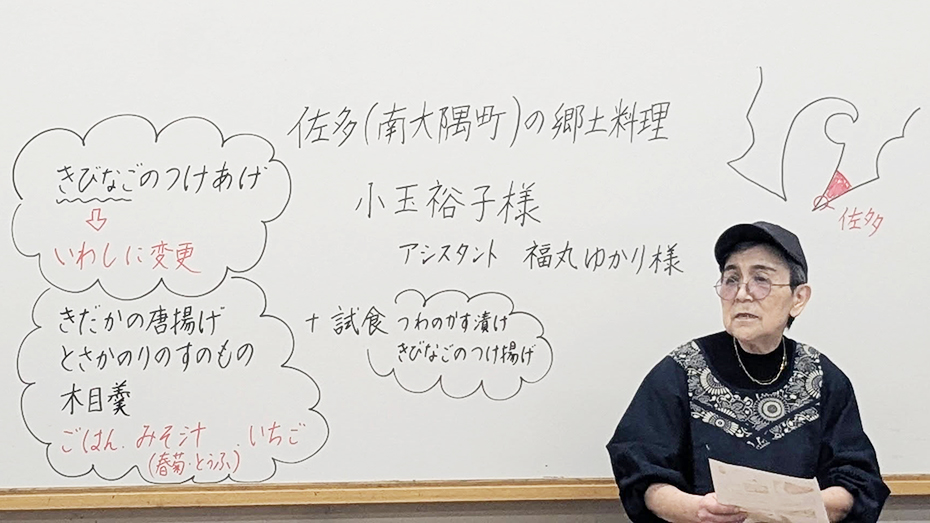 佐多(南大隅町)の郷土料理
小玉裕子様
アシスタント 福丸ゆかり様
きびなごのつけあげ
⇩
いわしに変更
きだかの唐揚げ
とさかのりのすのもの
木目羹
ごはん.みそ汁.いちご
(春菊・とうふ)
+ 試食 つわのかす漬け
きびなごのつけ揚げ
佐多